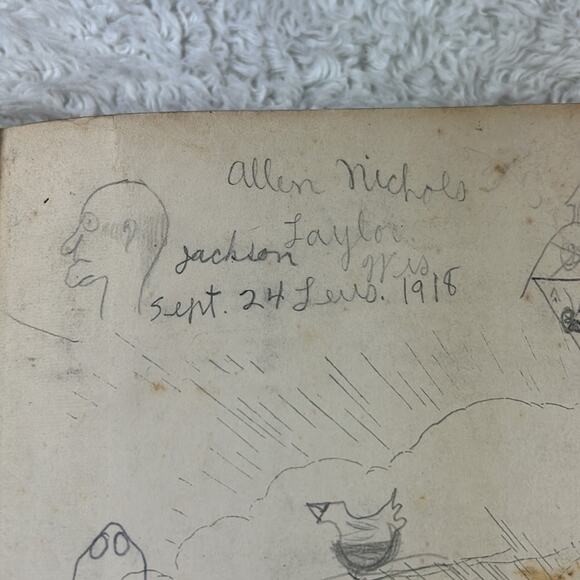 Allen Nichols
Taylor
Jackson Wis
Sept. 24 1918